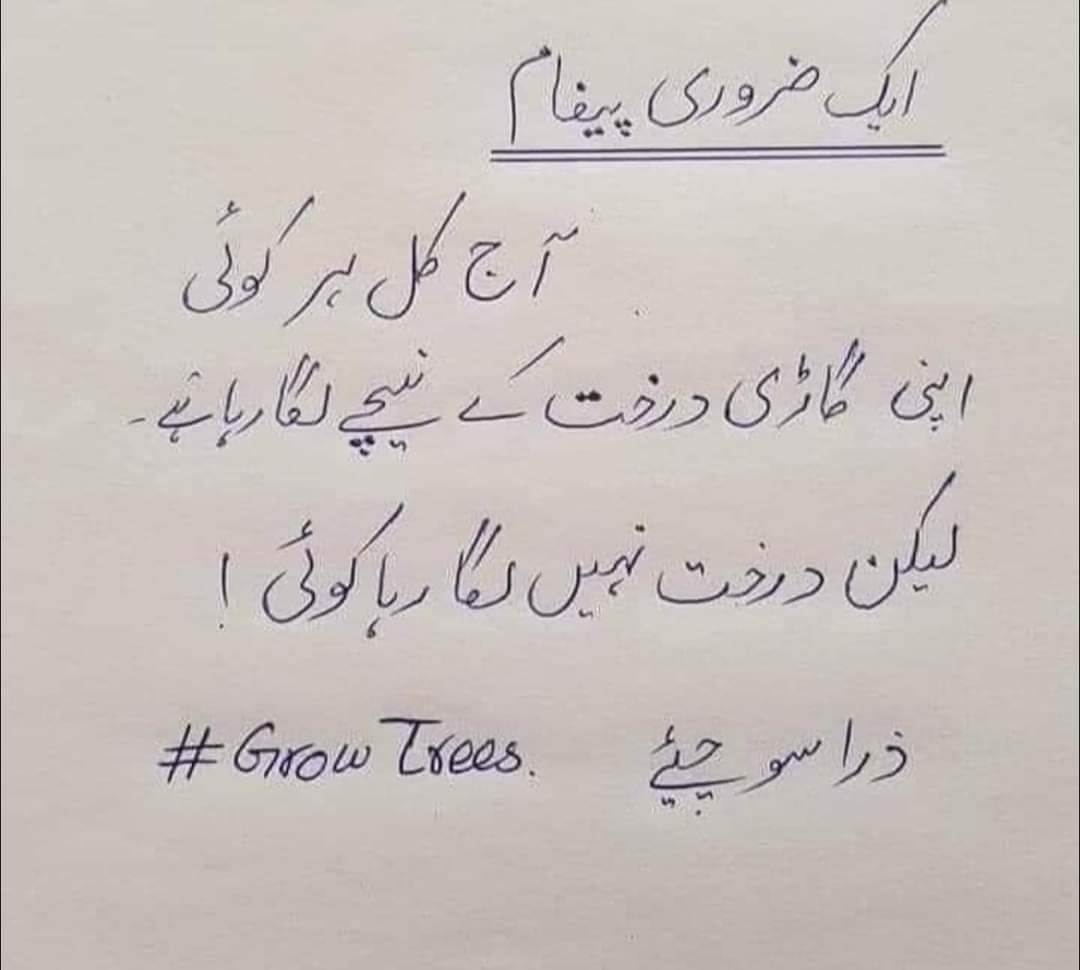 ایک ضروری پیغام
آج کل ہر کوئی
اپنی گاڑی درخت کے نیچے لگا رہا ہے۔
لیکن درخت نہیں لگا رہا کوئی !
ذرا سوچئیے # Grow Trees.